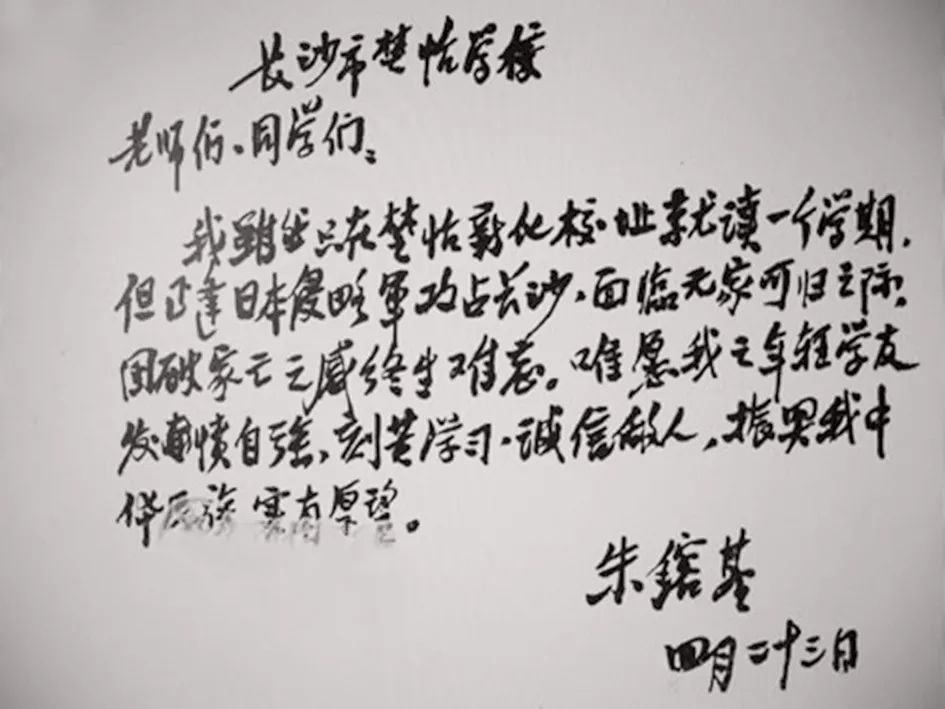 长沙市楚怡学校
老师们、同学们：
我虽然只在楚怡新化校址就读一个学期，
但正逢日本侵略军攻占长沙，面临无家可归之际，
国破家亡之感终生难忘。唯愿我之年轻学友
发奋愤自强，刻苦学习，诚信做人，振興我中
华民族，寔有厚望。
朱鎔基
四月二十三日